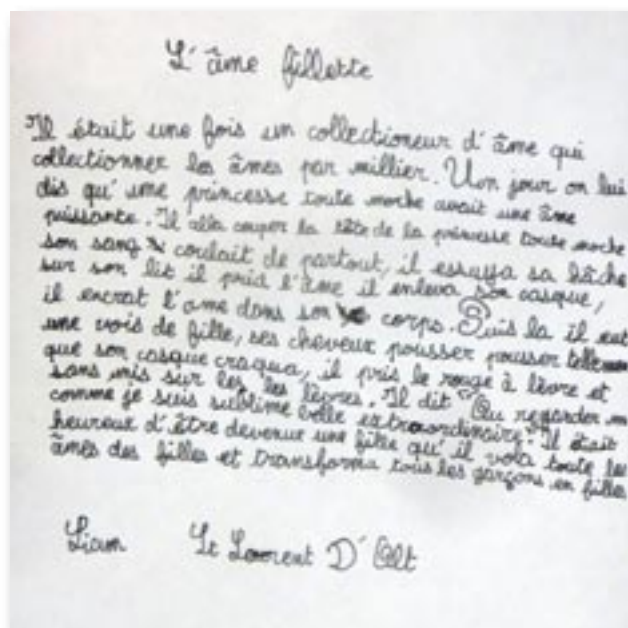 L'âme fillette
Il était une fois un collectioneur d'âme qui
collectionner les âmes par millier. Un jour on lui
dis qu'une princesse toute moche avait une âme
puissante. Il alla couper la tête de la princesse toute moche
son sang coulait de partout, il essuya sa hâche
sur son lit il prid l'âme il enleva son casque,
il encrat l'ame dans son corps. Puis la il eut
une vois de fille, ses cheveux pousser pousser tellement
que son casque craqua, il pris le rouge à lèvre et
sans mis sur les les lèvres. Il dit "Ou regarder
comme je suis sublime belle extraordinaire". Il était
heureux d'être devenue une fille qu'il vola toute les
âmes des filles et transforma tous les garçons en filles
Liam Lt Laurent D'Olt